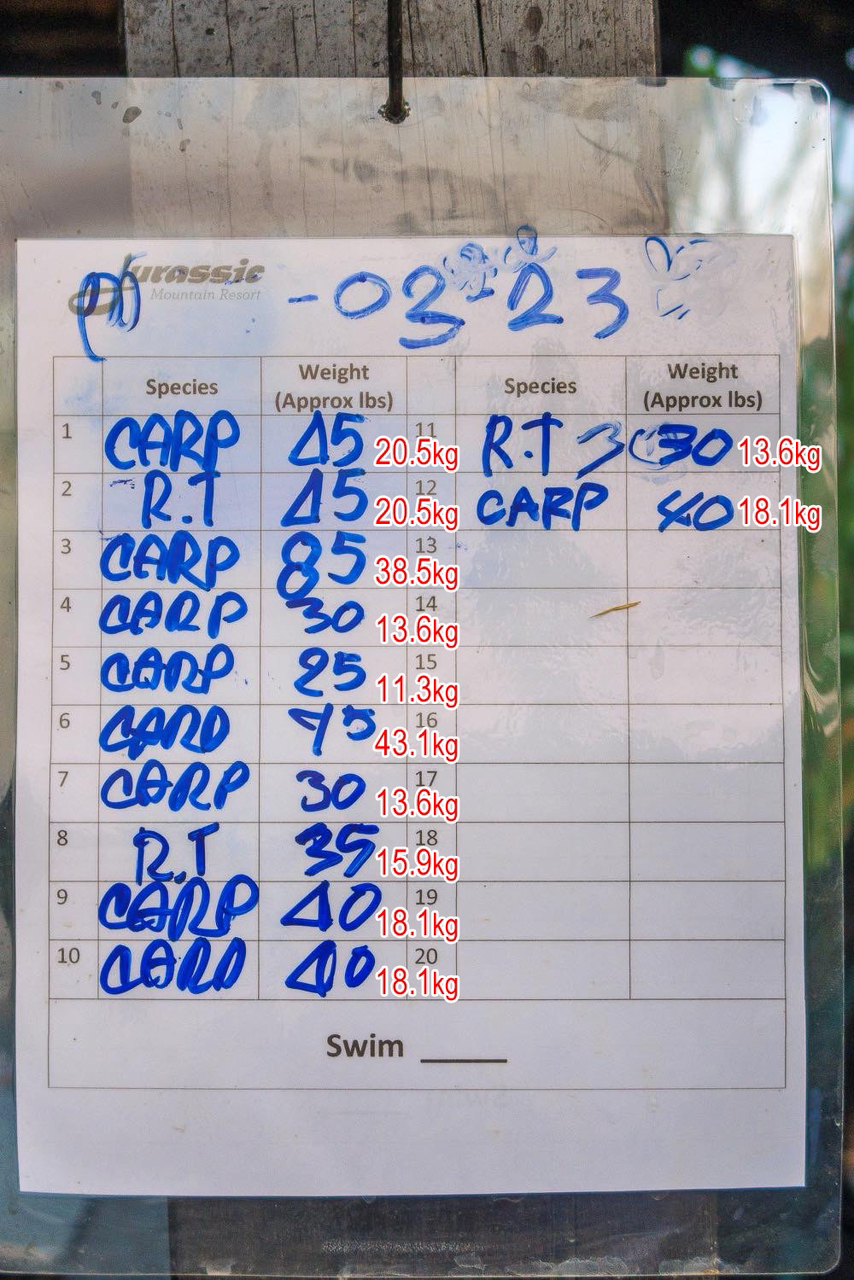 Jurassic
Mountain Resort
-03-23
Species Weight (Approx lbs) Species Weight (Approx lbs)
1 CARP 45 20.5kg 11 R.T 30 13.6kg
2 R.T 45 20.5kg 12 CARP 40 18.1kg
3 CARP 85 38.5kg 13
4 CARP 30 13.6kg 14
5 CARP 25 11.3kg 15
6 CARP 95 43.1kg 16
7 CARP 30 13.6kg 17
8 R.T 35 15.9kg 18
9 CARP 40 18.1kg 19
10 CARP 40 18.1kg 20
Swim ____